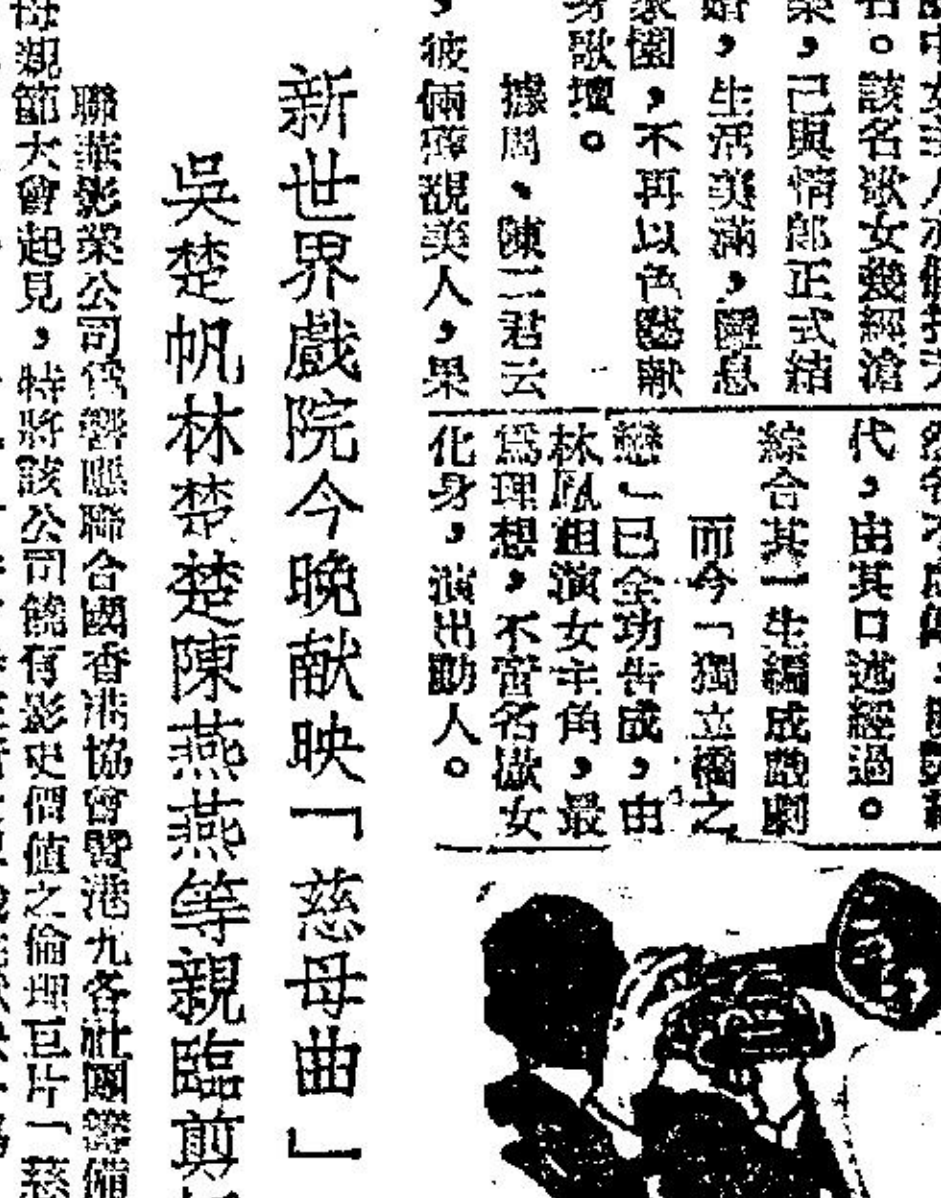 名。該名歌女幾經滄
桑，已與情郎正式結
婚，生活美滿，隱息
家園，不再以色藝献
身歌壇。
據周、陳二君云
，彼倆覩美人，果
代，由其口述經過。
綜合其一生編成戲劇
而今「獨立橋之
戀」已全功告成，由
林鳳担演女主角，最
爲理想，不啻名歌女
化身，演出動人。
新世界戲院今晚献映「慈母曲」
吳楚帆林楚楚陳燕燕等親臨剪
聯華影業公司爲響應聯合國香港協會暨港九各社團籌備
母親節大會起見，特將該公司饒有影史價值之倫理巨片「慈